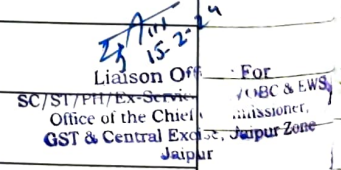 15-2-24
Liaison Off For
SC/ST/PH/Ex-Servic OBC & EWS,
Office of the Chief missioner,
GST & Central Excise, Jaipur Zone
Jaipur